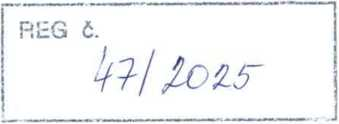 REG č.
47/2025